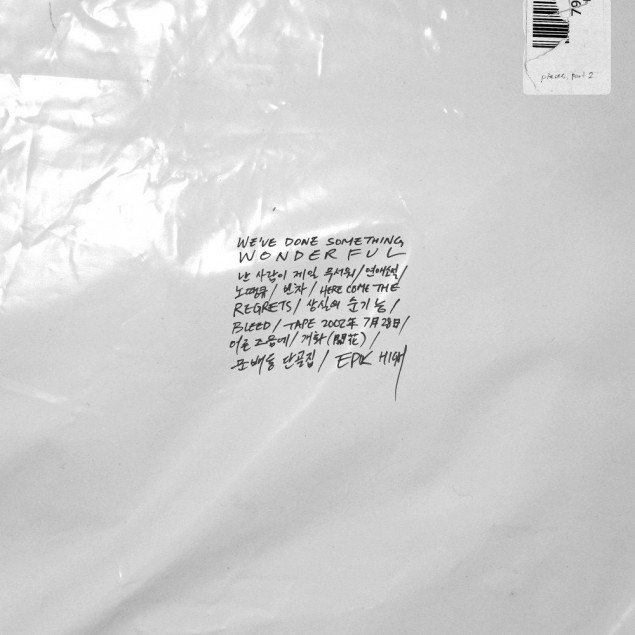 pieces, part 2
WE'VE DONE SOMETHING
WONDERFUL
난 사람이 제일 무서워/연애소설/
노땡큐/빈차/HERE COME THE
REGRETS/상실의 순기능/
BLEED/TAPE 2002年 7月 28日/
어른 즈음에/개화(開花)/
문배동 단골집/EPIK HIGH